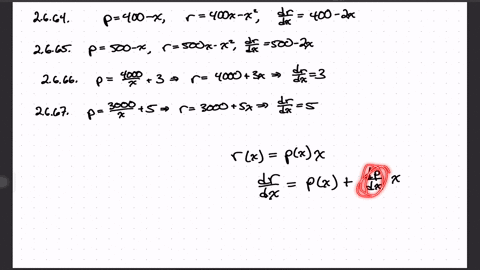 2.6.64. p = 400 - x, r = 400x - x², dr/dx = 400 - 2x
2.6.65. p = 500 - x, r = 500x - x², dr/dx = 500 - 2x
2.6.66. p = 4000/x + 3 ⇒ r = 4000 + 3x ⇒ dr/dx = 3
2.6.67. p = 3000/x + 5 ⇒ r = 3000 + 5x ⇒ dr/dx = 5
r(x) = p(x) x
dr/dx = p(x) + dp/dx x